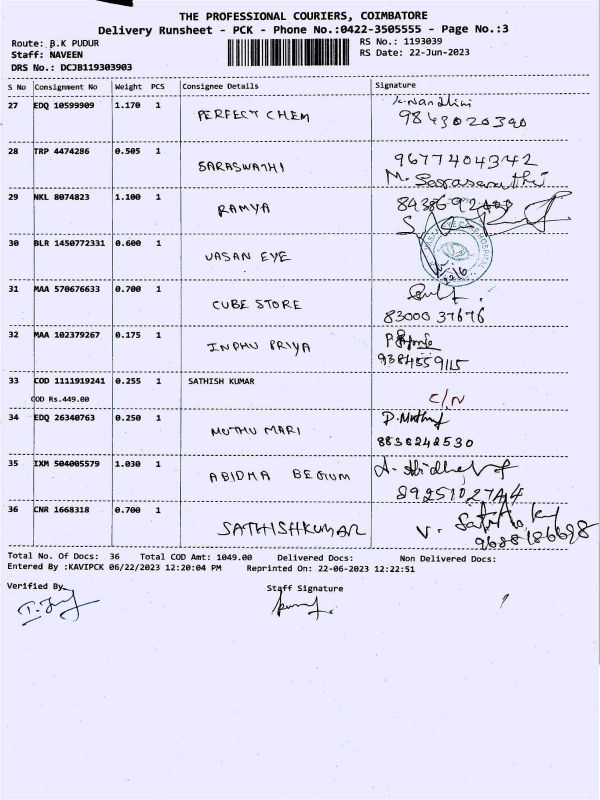 THE PROFESSIONAL COURIERS, COIMBATORE
Delivery Runsheet - PCK - Phone No.:0422-3505555 - Page No.:3
Route: B.K PUDUR
RS No.: 1193039
Staff: NAVEEN
RS Date: 22-Jun-2023
DRS No.: DCJB119303903
S No Consignment No Weight PCS Consignee Details Signature
27 EDQ 10599909 1.170 1 PERFECT CHEM
9843020390
28 TRP 4474286 0.505 1 SARASWATHI 9677404342
M. Sarasuruthi
29 NKL 8074823 1.100 1 RAMYA
30 BLR 1450772331 0.600 1 VASAN EYE
31 MAA 570676633 0.700 1 CUBE STORE
83000 37676
32 MAA 102379267 0.175 1 INDHU PRIYA
9384559115
33 COD 1111919241 0.255 1 SATHISH KUMAR
COD Rs.449.00 C/N
34 EDQ 26340763 0.250 1 MUTHU MARI
8838242530
35 IXM 504005579 1.030 1 ABIDHA BEGUM
36 CNR 1668318 0.700 1 SATHISHKUMAR
9688186698
Total No. Of Docs: 36 Total COD Amt: 1049.00 Delivered Docs: Non Delivered Docs:
Entered By :KAVIPCK 06/22/2023 12:20:04 PM Reprinted On: 22-06-2023 12:22:51
Verified By Staff Signature